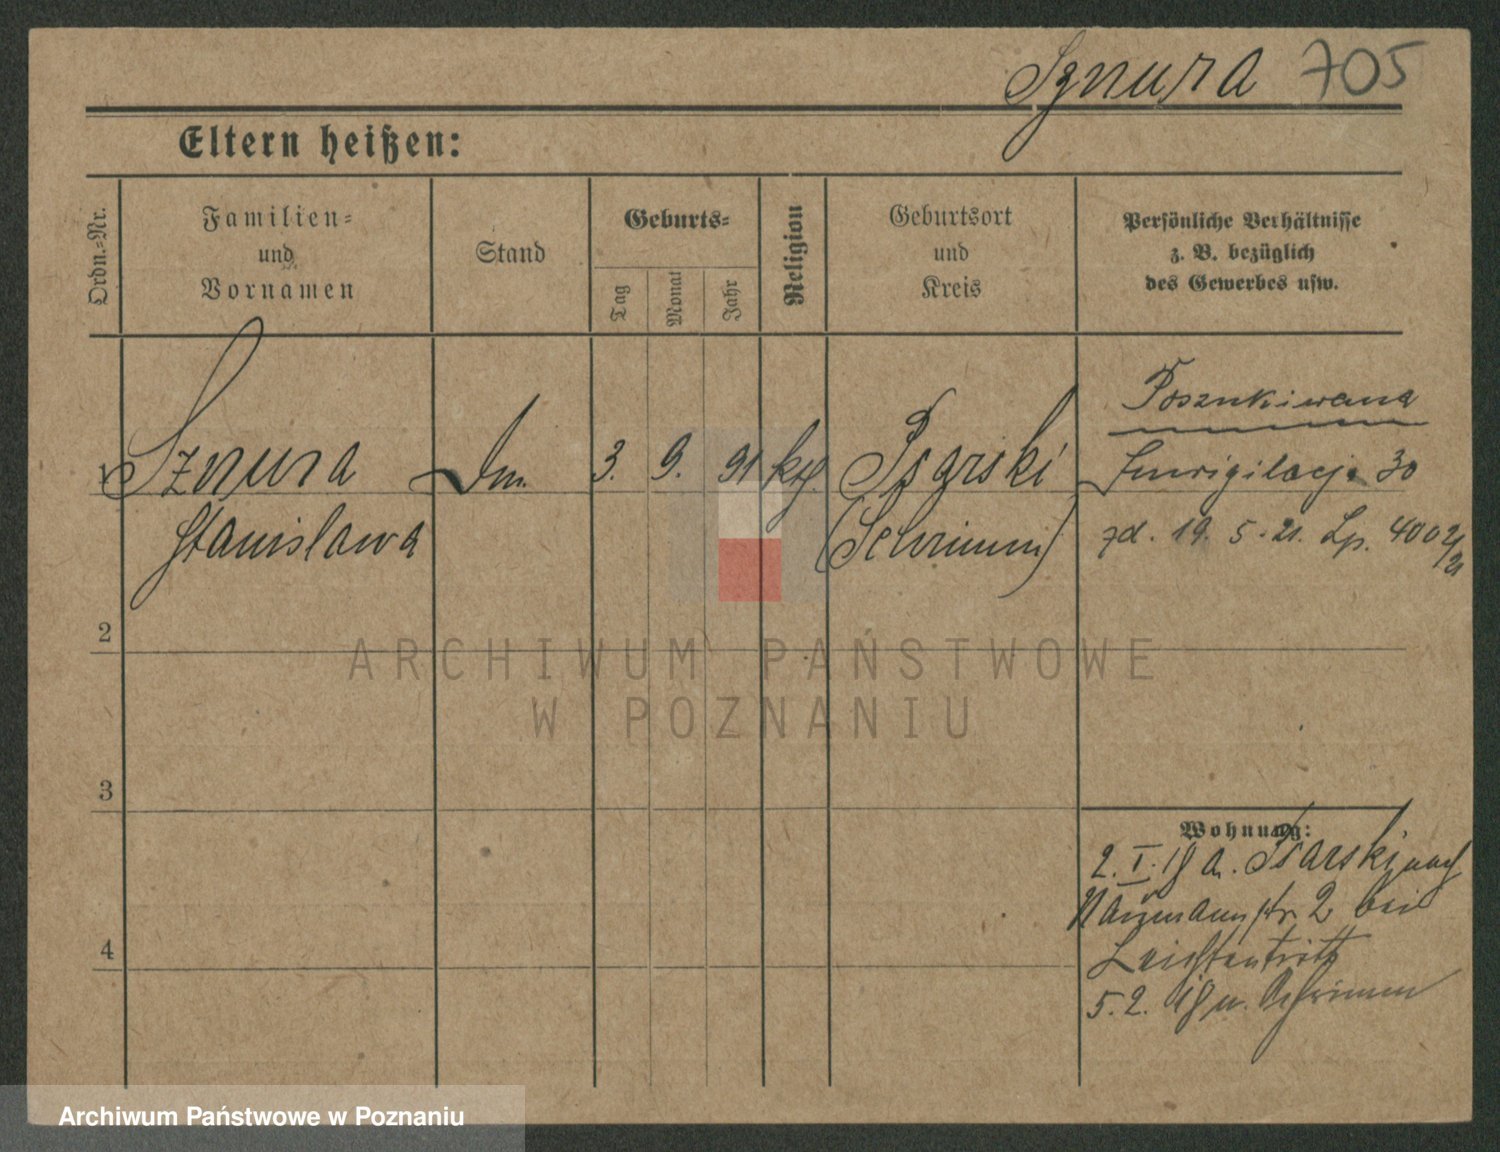 Sznura 705
Eltern heißen:
Ordn.=Nr.
Familien=
und
Vornamen
Stand
Geburts=
Tag
Monat
Jahr
Religion
Geburtsort
und
Kreis
Persönliche Verhältnisse
z. B. bezüglich
des Gewerbes usw.
1 Sznura
Stanisława
3. 9. 91 kth.
Psarski
(Schrimm)
Poszukiwana
Inwigilacja 30
zd. 19. 5. 21. Lp. 4002/21
2
3
4
Wohnung:
2. I. 18 a. Psarski nach
Naumannstr. 2 bei
Leichtentritt
5. 2. 18 n. Schrimm
ARCHIWUM PAŃSTWOWE
W POZNANIU
Archiwum Państwowe w Poznaniu